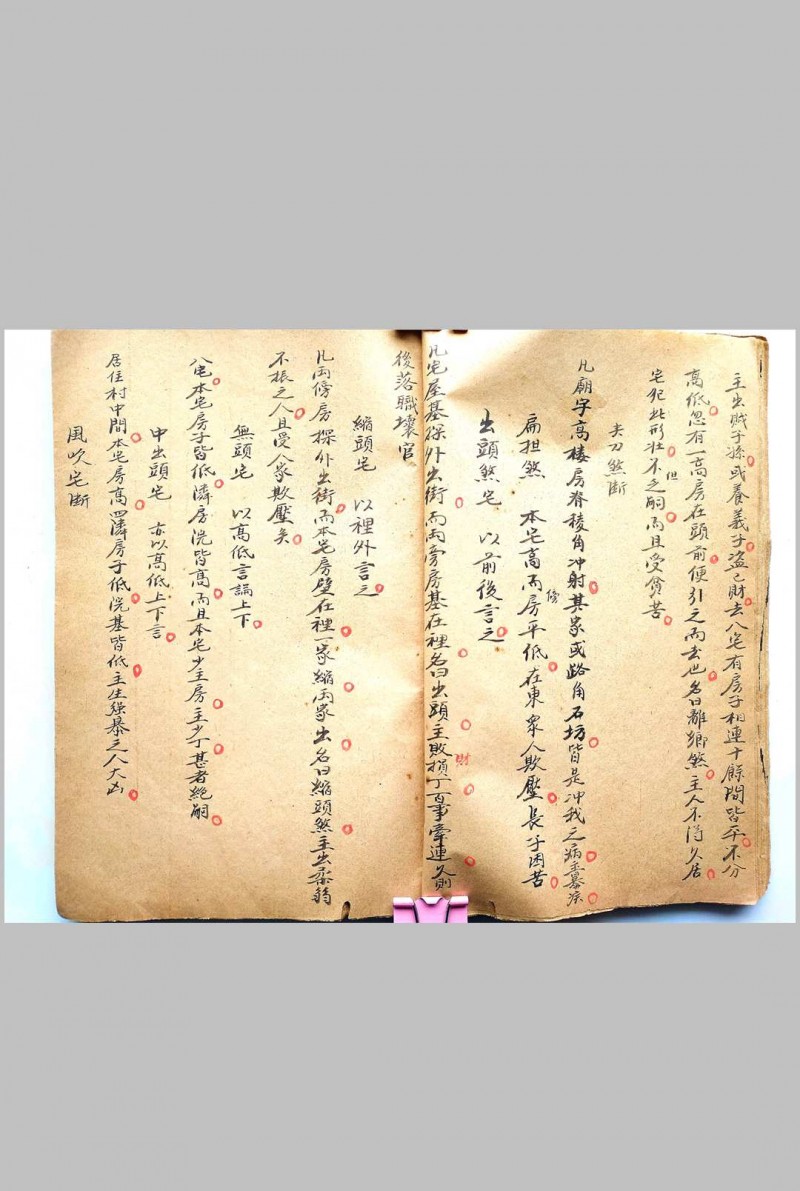 主出賊子孫或養義子盗己財去八宅有房子相連十餘間皆平不分
高低忽有一高房在頭前便引之而去也名曰離鄉煞主人不得久居
宅犯此形壮不但乏嗣而且受貧苦
夫刀煞斷
凡廟宇高楼房脊稜角冲射其家或路角石坊皆是冲我之病主暴疾
扁担煞 本宅高而傍房平低在東衆人欺壓長子困苦
出頭煞宅 以前後言之
凡宅屋基探外出街而兩旁房基在裡名曰出頭主敗財損丁百事牽連久則
後落職壞官
縮頭宅 以裡外言之
凡両傍房探外出街而本宅房壁在裡一家縮両家出名曰縮頭煞主出弱
不振之人且受人家欺壓矣
無頭宅 以高低言論上下
八宅本宅房子皆低隣房浣皆高而且本宅少主房主少丁甚者絶嗣
中出頭宅 亦以高低上下言
居住村中間本宅房高四隣房子低浣基皆低主生强暴之人大凶
風吹宅斷